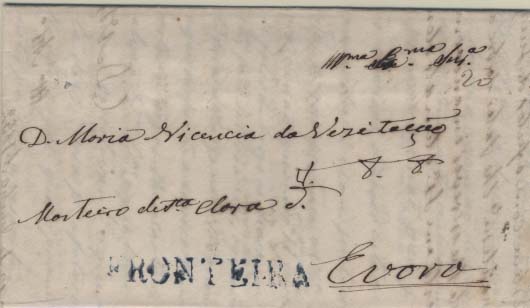 Illma. Exma. Snra.
20
D. Maria Vicencia da Vezitação
Mosteiro de Sta Clara d.
FRONTEIRA
Evora